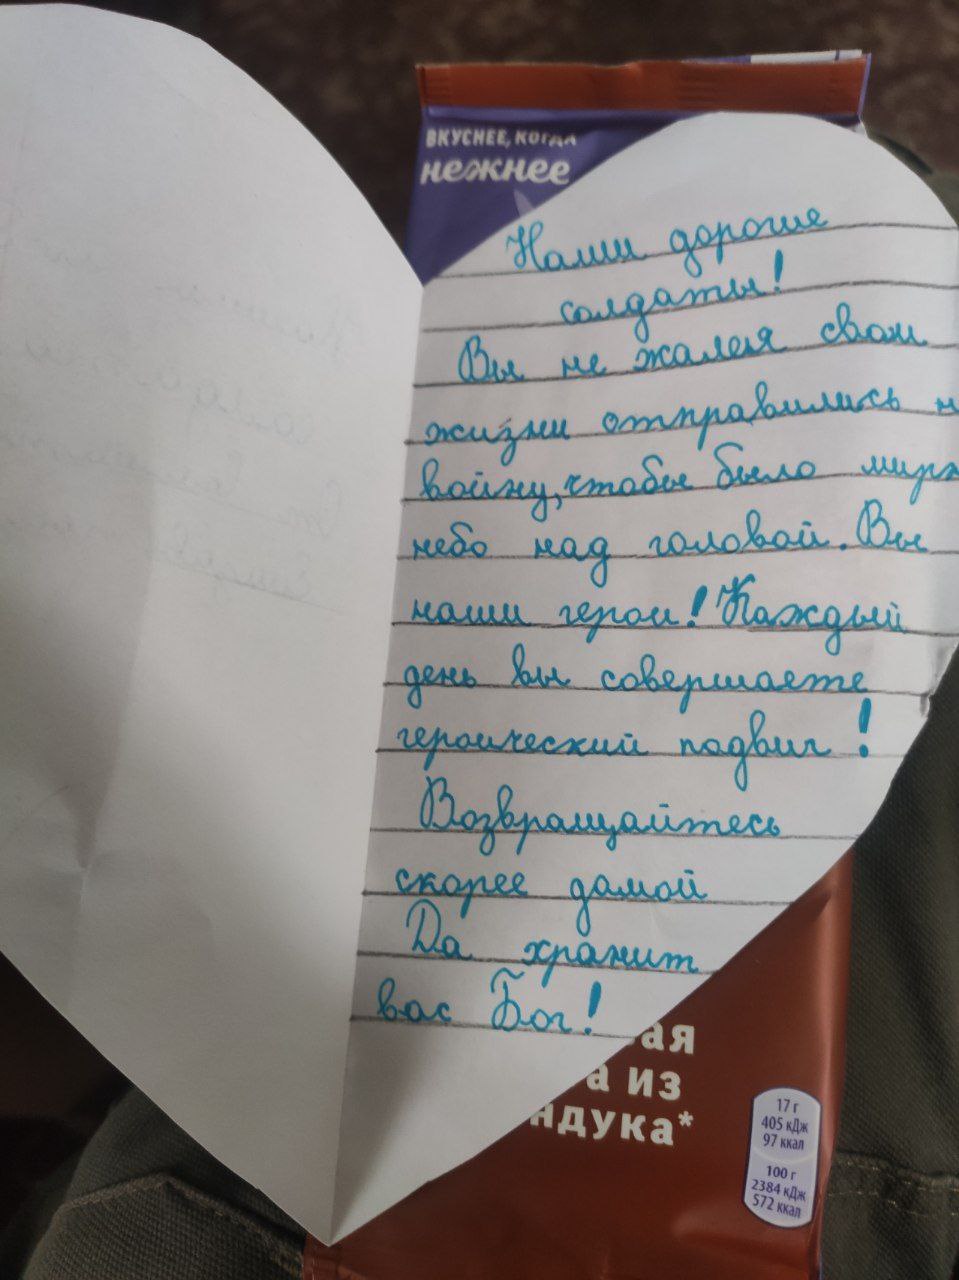 ВКУСНЕЕ, КОГДА
нежнее
Наши дорогие
солдаты!
Вы не жалея свои
жизни отправились н
войну, чтобы было мирн
небо над головой. Вы
наши герои! Каждый
день вы совершаете
героический подвиг!
Возвращайтесь
скорее домой
Да хранит
вас Бог!
вая
а из
ндука*
17 г
405 кДж
97 ккал
100 г
2384 кДж
572 ккал